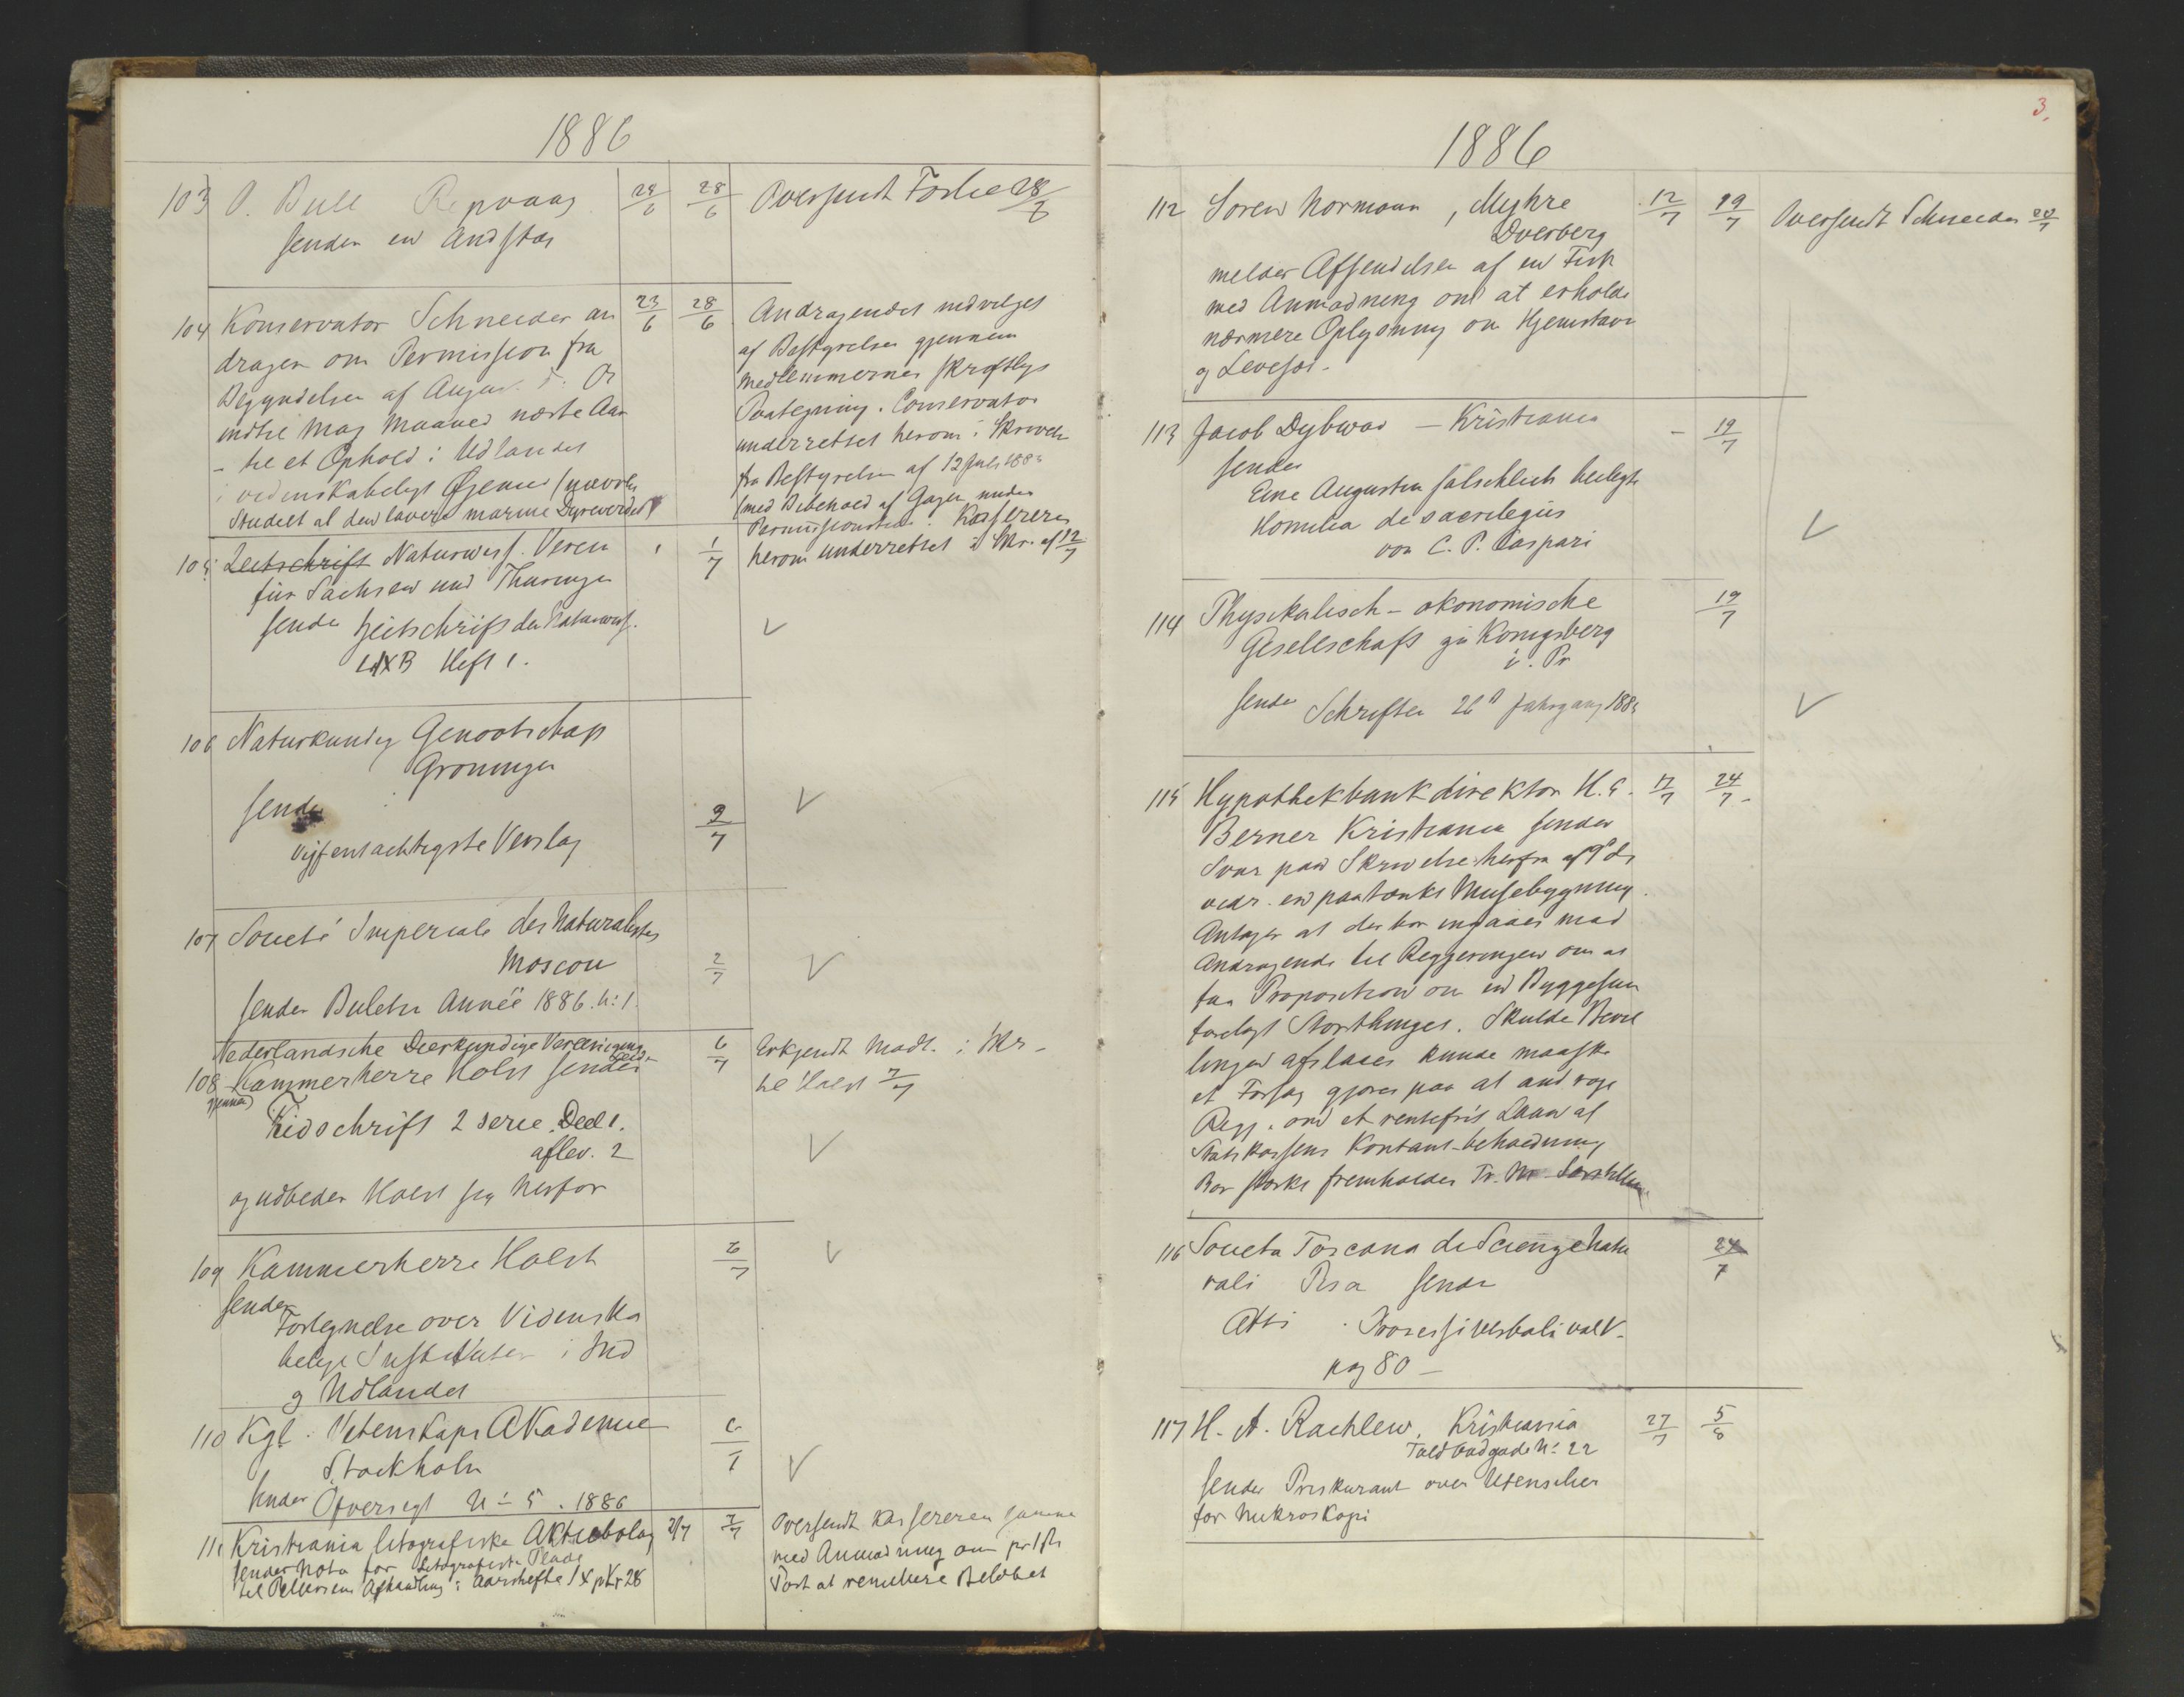 1886
103 O. Bull Repvaag 24/6 28/6 Oversendt Foslie 28/6
sender en Andstær
104 Konservator Schneider an 23/6 28/6 Andragendet indvilget
drager om Permission fra af Bestyrelsen gjennem
Begyndelsen af Medlemmernes skriftlige
indtil Maj Maaned næste Aar Paategning. Conservator
- til et Ophold i Udlandet underrettet herom i Skrivelse
i videnskabeligt Øjemed fra Bestyrelsen af 12 Juli
Studeet af den lavere marine Dyreverden (med Bibehold af Gagen under
Permissionstiden. Kasserer
105 Zeitschrift Naturwiss. Verein 1/7 herom underrettet i Skr. af 12/7
für Sachsen und Thuringen
sender Zeitschrift der Naturwiss.
Heft 1. V
106 Naturkundig Genootschap
Groningen
sender
Vijfentachtigste Verslag 2/7 V
107 Societé Imperiale des Naturalistes
Moscou 2/7 V
sender Buletin Année 1886. N: 1.
Nederlandsche Dierkundige Vereeniging 6/7 Erkjendt Modt. i Skr.
108 Kammerherre Holst sender til Holst 7/7
gjennem
Tidschrift 2 serie. Deel 1.
aflev. 2 V
og udbeder Holst sig herfor
109 Kammerherre Holst 6/7 V
sender
Fortegnelse over Videnska
belige Institutter i Ind
og Udlandet
110 Kgl. Vetenskaps Akademie 6/7
Stockholm V
sender Öfversigt N: 5. 1886
111 Kristiania litografiske Aktiebolag 2/7 7/7 Oversendt Kassereren samme
sender Nota for Litografiske Plade med Anmodning om pr 1ste
til Petersens Afhandling i Aarshefte IX pKr 28 Post at remittere Beløbet
3.
1886
112 Soren Normann, Myhre 12/7 19/7 Oversendt Schneider 20/7
Dverberg
melder Afsendelsen af en Fisk
med Anmodning om at erholde
nærmere Oplysning om Hjemstavn
og Levesæt.
113 Jacob Dybwad — Kristiania - 19/7
sender
Eine Augustin fälschlich beilegte
Homilia de sacrilegiis V
von C. P. Caspari
114 Physikalisch-økonomische 19/7
Gesellschaft zu Königsberg
i. Pr
sender Schriften 26 Jahrgang 1885 V
115 Hypothekbankdirektør H. E. 17/7 24/7
Berner Kristiania sender
Svar paa Skrivelse herfra af 9de ds
vedr. en paatænkt Musebygning.
Antager at der bør indgaaes med
Andragende til Regjeringen om at
faa Proposition om en Byggesum
forelagt Storthinget. Skulde Bevil
lingen afslaaes kunde maaske
et Forsøg gjøres paa at andrage
Regj. om et rentefrit Laan af
Statskassens Kontant-beholdning
Bør stærkt fremholdes Tr.
116 Societa Toscana di Scienze Natu 24/7
rali Pisa sender
Atti. Processi verbali vol V.
pag 80 —
117 H. A. Rachlew, Kristiania 27/7 5/8
Toldbodgade N: 22
sender Priskurant over Utensilier
for Mikroskopi